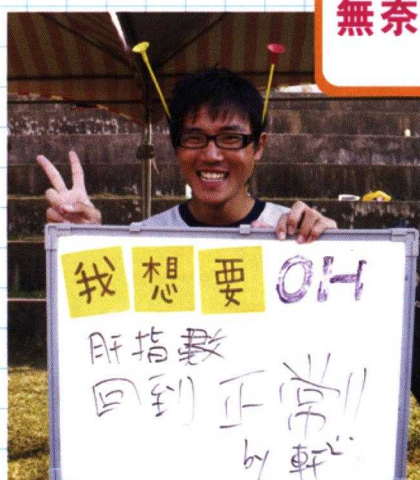 無奈
我想要OH
肝指數
回到正常!!
by 軒